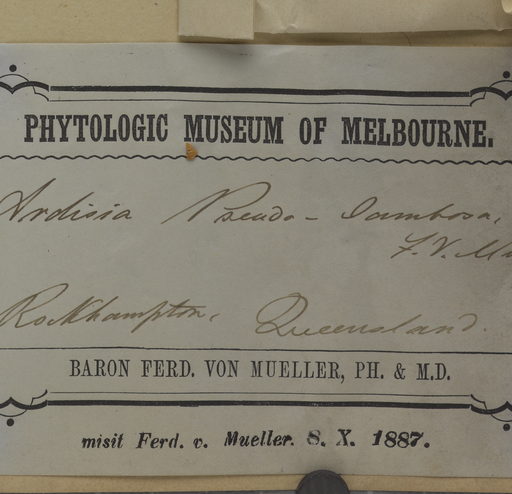 PHYTOLOGIC MUSEUM OF MELBOURNE.
Ardisia Pseudo-Jambosa,
F. V. Mu
Rockhampton, Queensland.
BARON FERD. VON MUELLER, PH. & M.D.
misit Ferd. v. Mueller. 8. X. 1887.